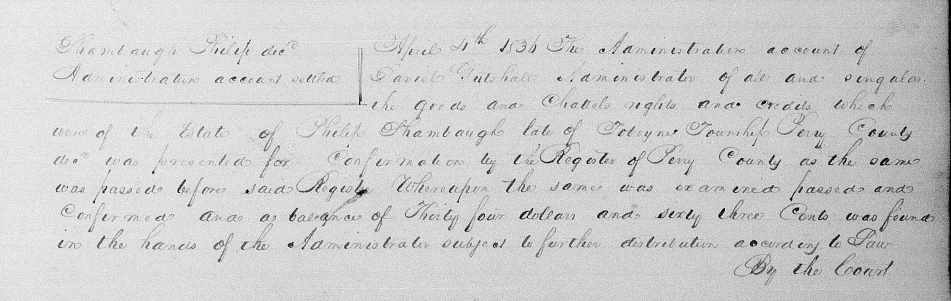 Shambaugh Philip decd
Administration account settled
April 4th 1836 The Administration account of
Daniel Gutshall Administrator of all and singular
the goods and Chattels rights and credits which
were of the Estate of Philip Shambaugh late of Toboyne Township Perry County
decd was presented for Confirmation by the Register of Perry County as the same
was passed before said Register Whereupon the same was examined passed and
Confirmed and a balance of Thirty four dollars and sixty three Cents was found
in the hands of the Administrator subject to further distribution according to Law
By the Court